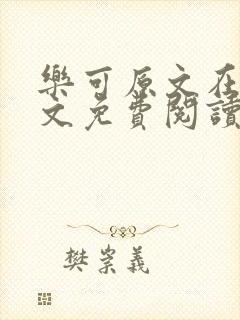 樂可原文在
文免費閱讀
樊崇義